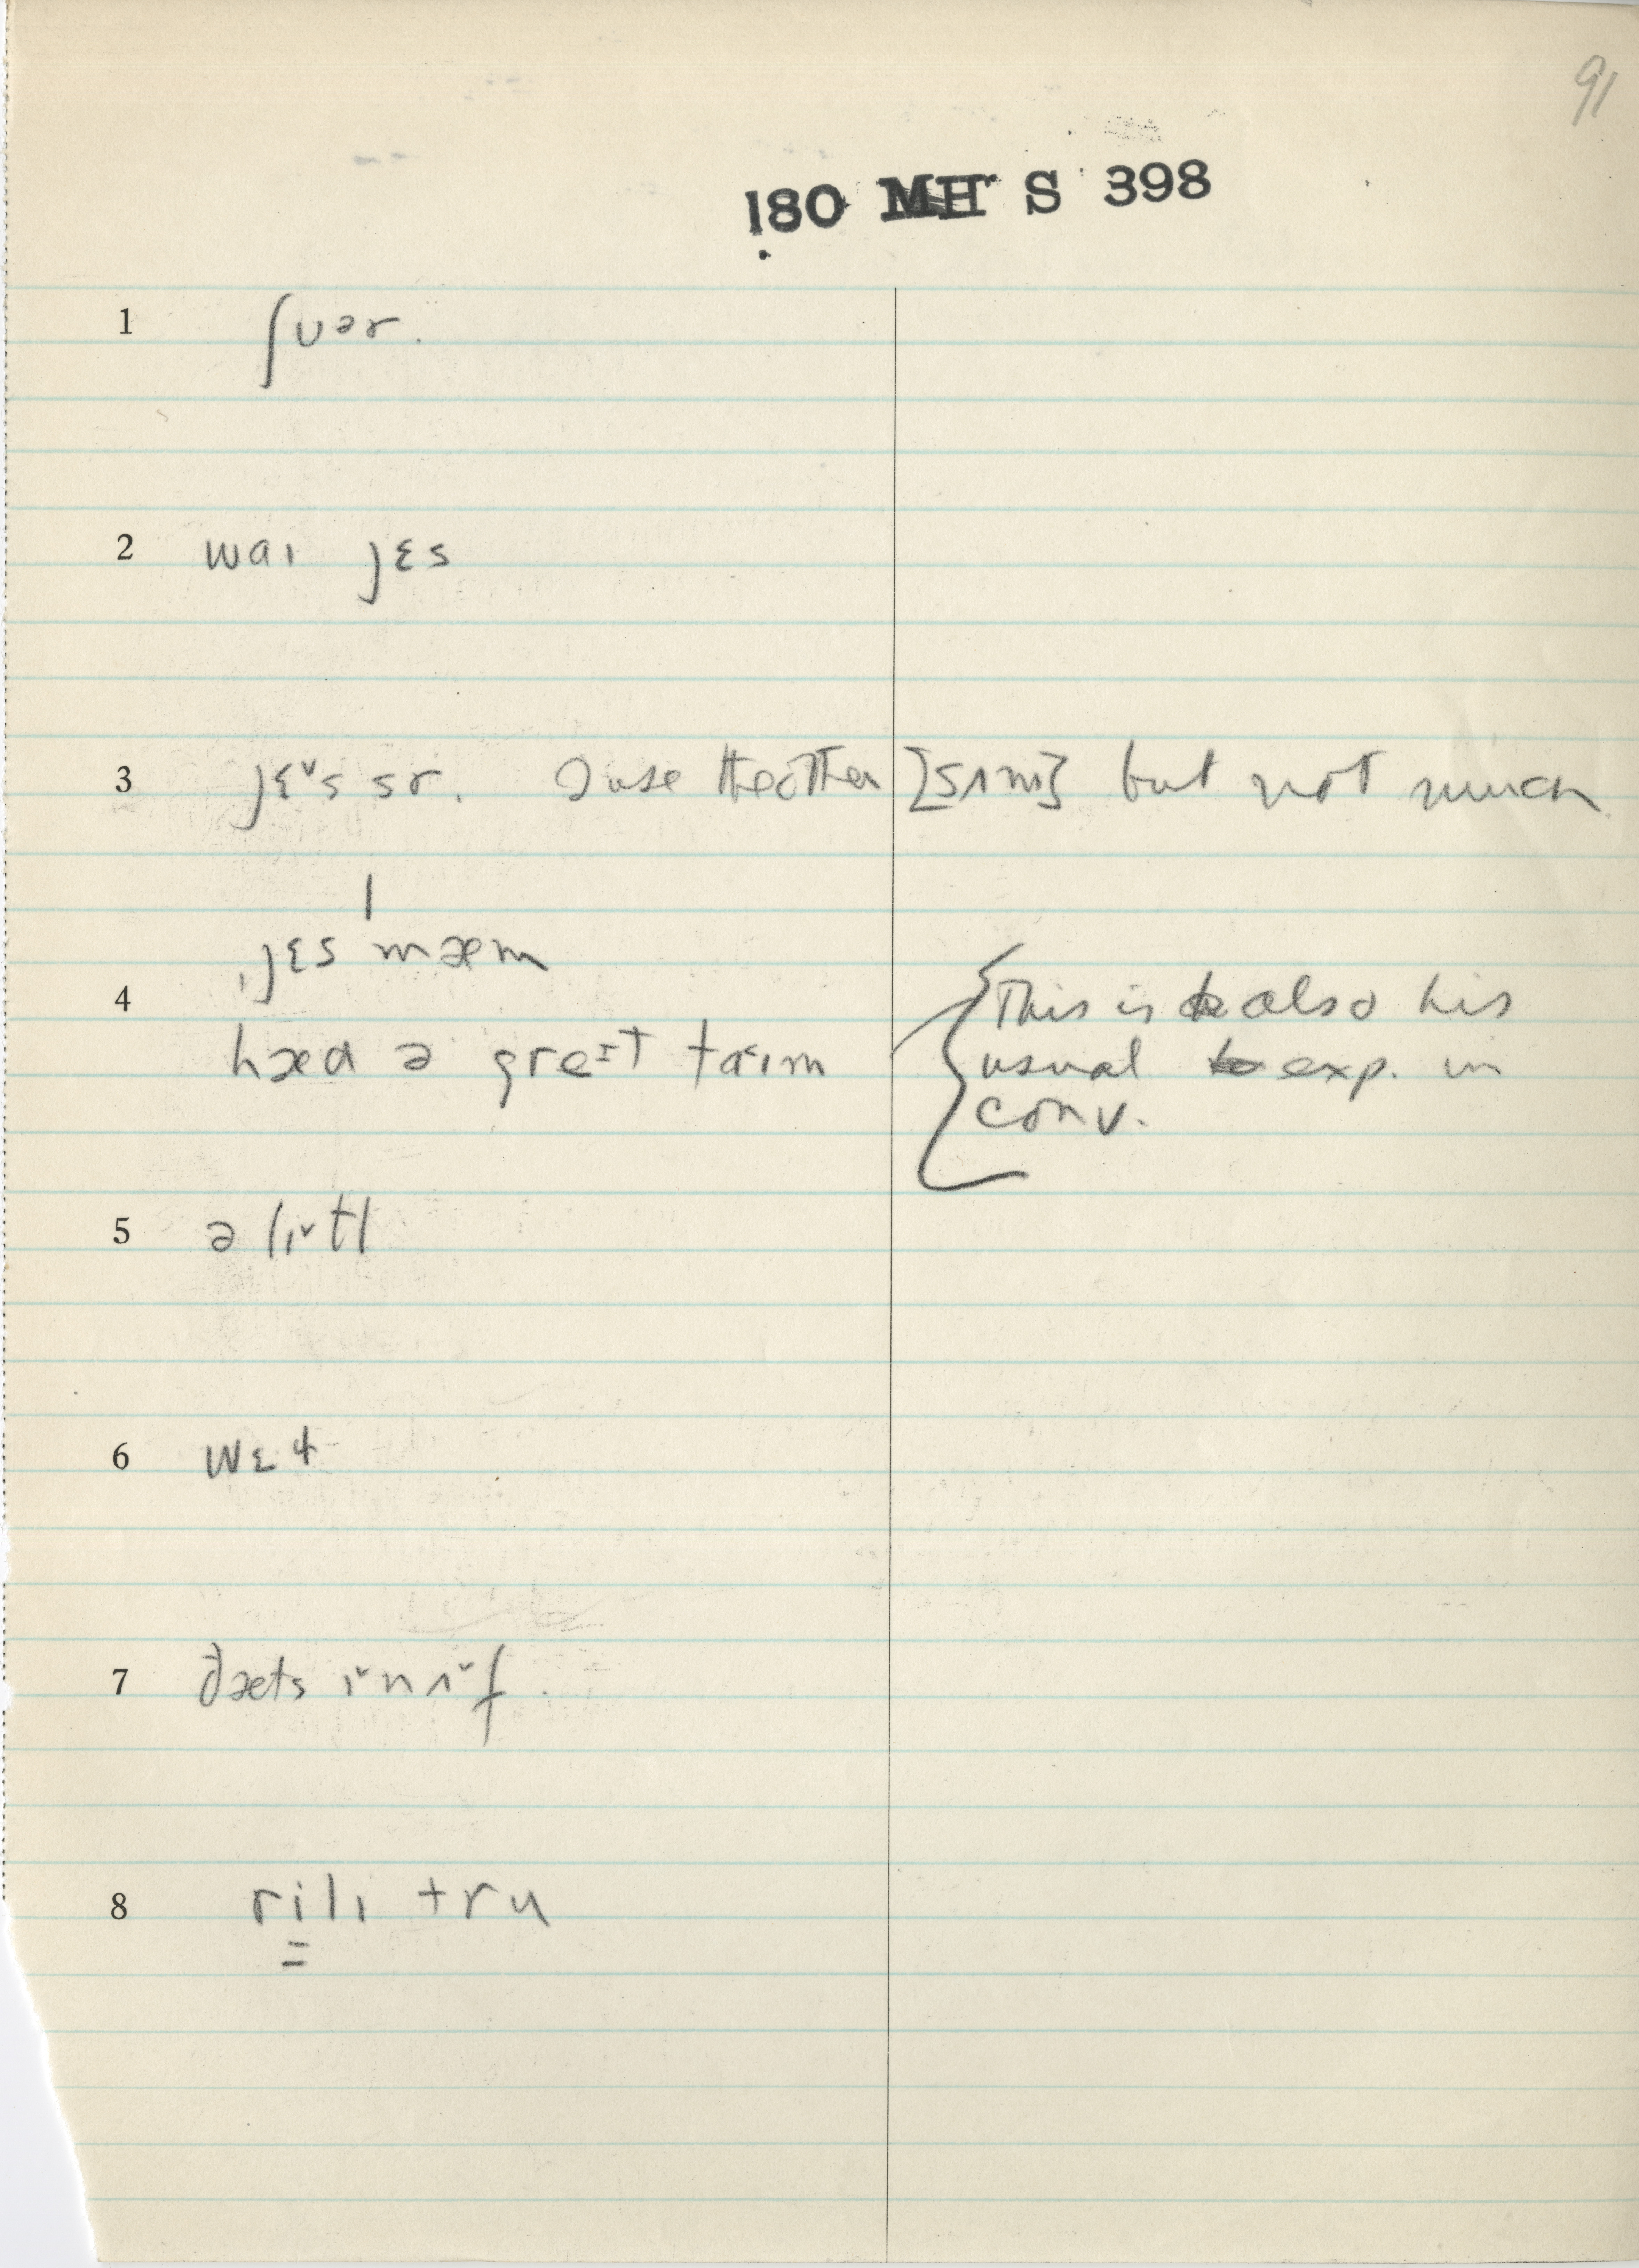 91
180 MH S 398
1 ʃʊər.
2 waɪ jɛs
3 jɛˇs sr. I use the other [sʌm] but not much
ˌjɛs ˈmæm
4
hæd ə greɪt taɪm
This is also his
usual exp. in
conv.
5 ə lɪˇtl
6 wɛt
7 ðæts ɪˇnʌˇf.
8 rilɪ tru